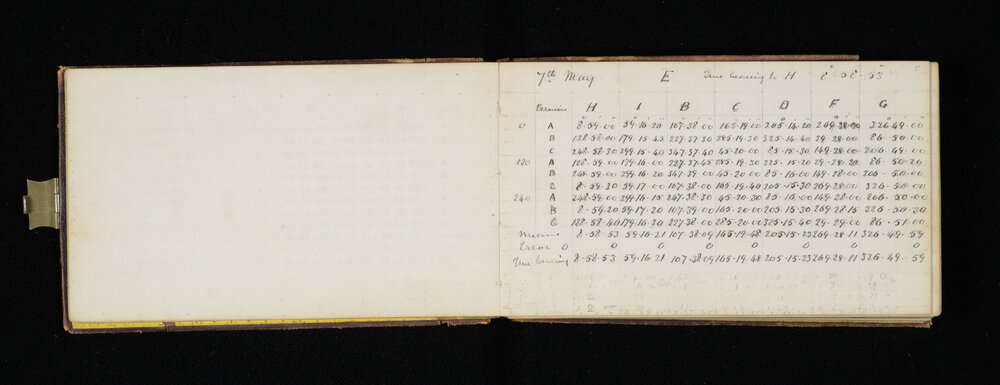 7th May E True bearing to H 8° 58' 53"
Vernier H I B C D F G
0 A 8.59.00 59.16.20 107.38.00 165.19.00 205.14.20 269.28.20 326.49.00
B 128.58.00 179.15.45 227.37.30 285.19.30 325.14.40 29.28.00 86.50.00
C 248.58.30 299.15.40 347.37.40 45.20.00 85.15.30 149.28.00 206.49.00
120 A 128.59.00 179.16.00 227.37.45 285.19.30 325.15.20 29.28.20 86.50.20
B 248.59.00 299.16.20 347.39.00 45.20.00 85.16.00 149.28.00 206.50.00
C 8.59.30 59.17.00 107.38.00 165.19.40 205.15.30 269.28.00 326.50.00
240 A 248.59.00 299.16.15 347.38.30 45.20.30 85.16.00 149.28.00 206.50.00
B 8.59.20 59.17.20 107.39.00 165.20.00 205.15.30 269.28.15 326.50.30
C 128.58.40 179.16.30 227.38.00 285.20.00 325.15.40 29.29.00 86.51.00
Means 8.58.53 59.16.21 107.38.09 165.19.48 205.15.23 269.28.11 326.49.59
Error 0 0 0 0 0 0 0
True bearing 8.58.53 59.16.21 107.38.09 165.19.48 205.15.23 269.28.11 326.49.59